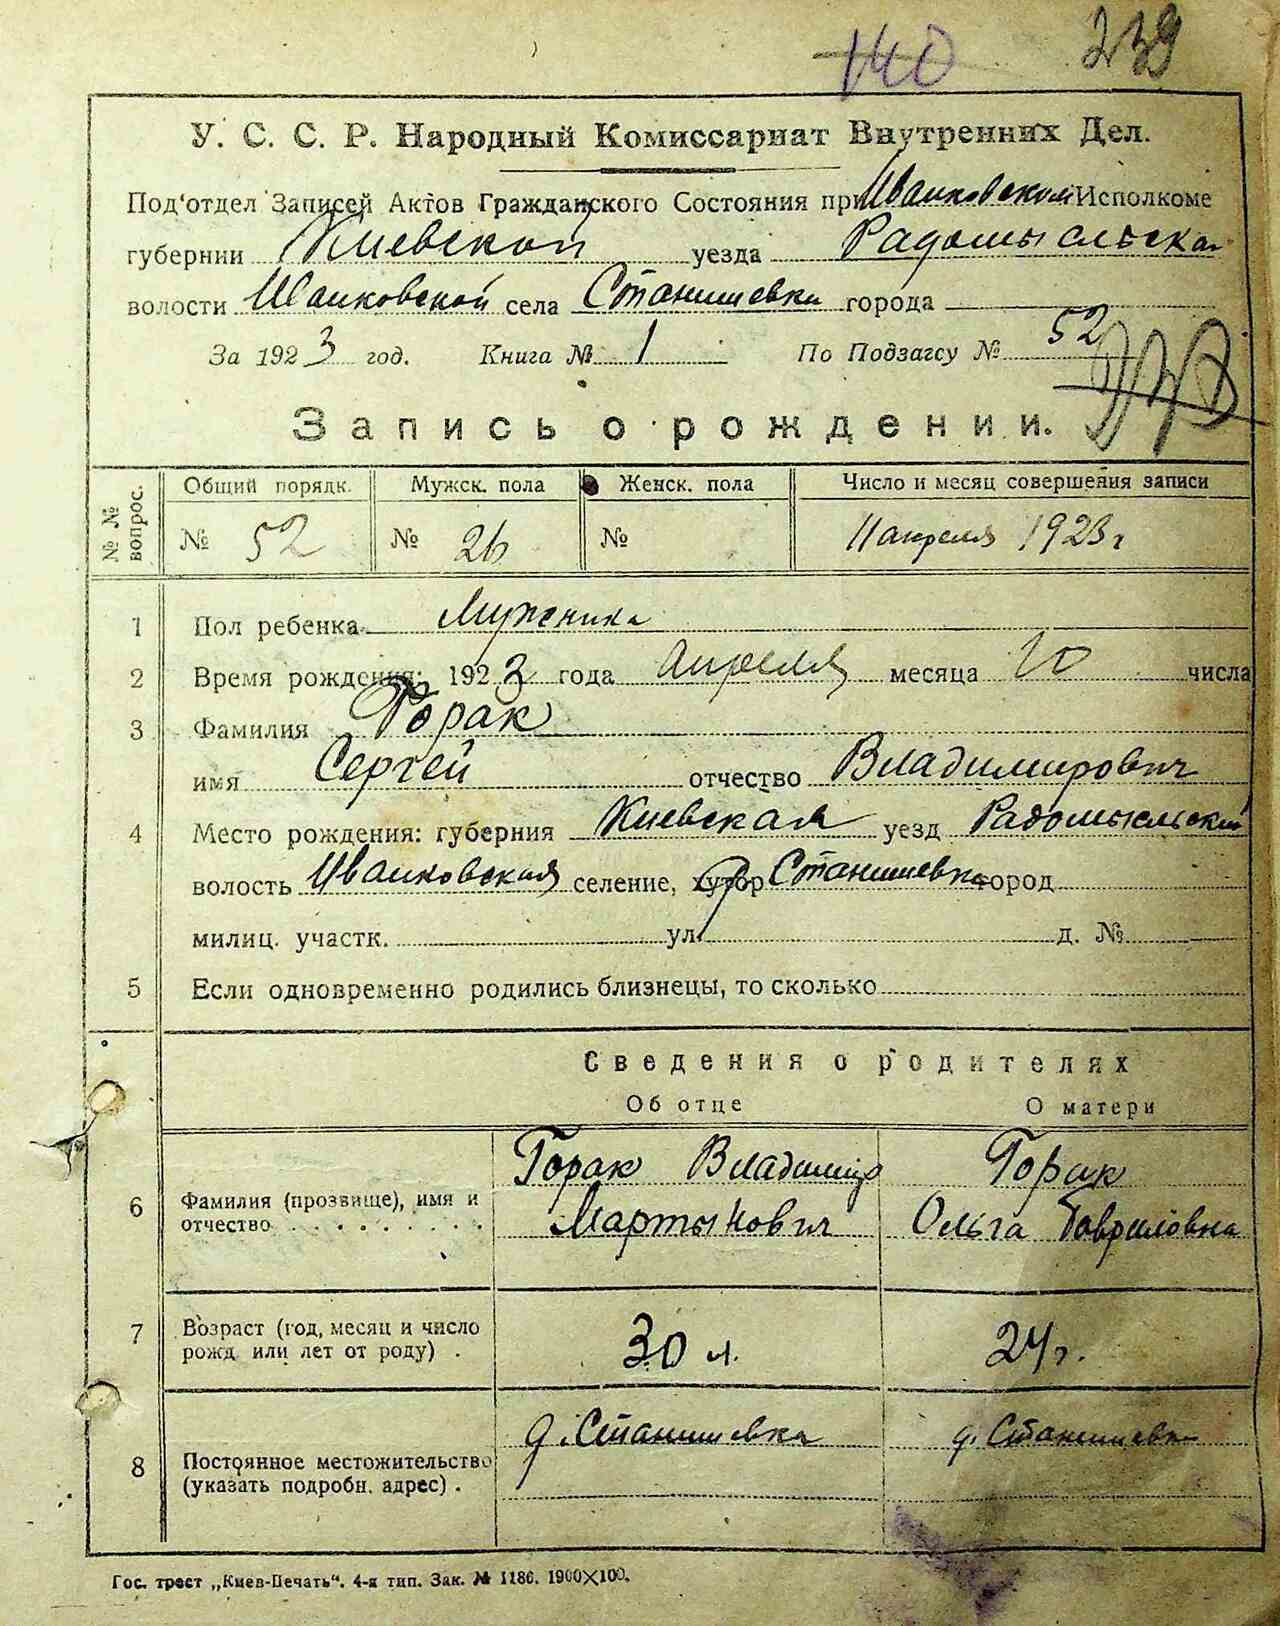 140 239
У. С. С. Р. Народный Комиссариат Внутренних Дел.
Под'отдел Записей Актов Гражданского Состояния при Иванковском Исполкоме
губернии Киевской уезда Радомысльска
волости Иванковской села Станишевки города
За 1923 год. Книга № 1 По Подзагсу № 52
Запись о рождении.
№№ вопрос. Общий порядк. Мужск. пола Женск. пола Число и месяц совершения записи
№ 52 № 26 № 11 апреля 1923 г
1 Пол ребенка
2 Время рождения: 1923 года апреля месяца 10 числа
3 Фамилия Горак
имя Сергей отчество Владимирович
4 Место рождения: губерния Киевская уезд Радомысльский
волость Иванковская селение, хутор Станишевка город
милиц. участк. ул. д. №
5 Если одновременно родились близнецы, то сколько
Сведения о родителях
Об отце О матери
Горак Владимир Горак
6 Фамилия (прозвище), имя и
отчество Мартынович Ольга Гавриловна
7 Возраст (год, месяц и число
рожд. или лет от роду) . 30 л. 24 г.
д. Станишевка д. Станишевка
8 Постоянное местожительство
(указать подробн. адрес) .
Гос. трест „Киев-Печать“. 4-я тип. Зак. № 1186. 1900×100.